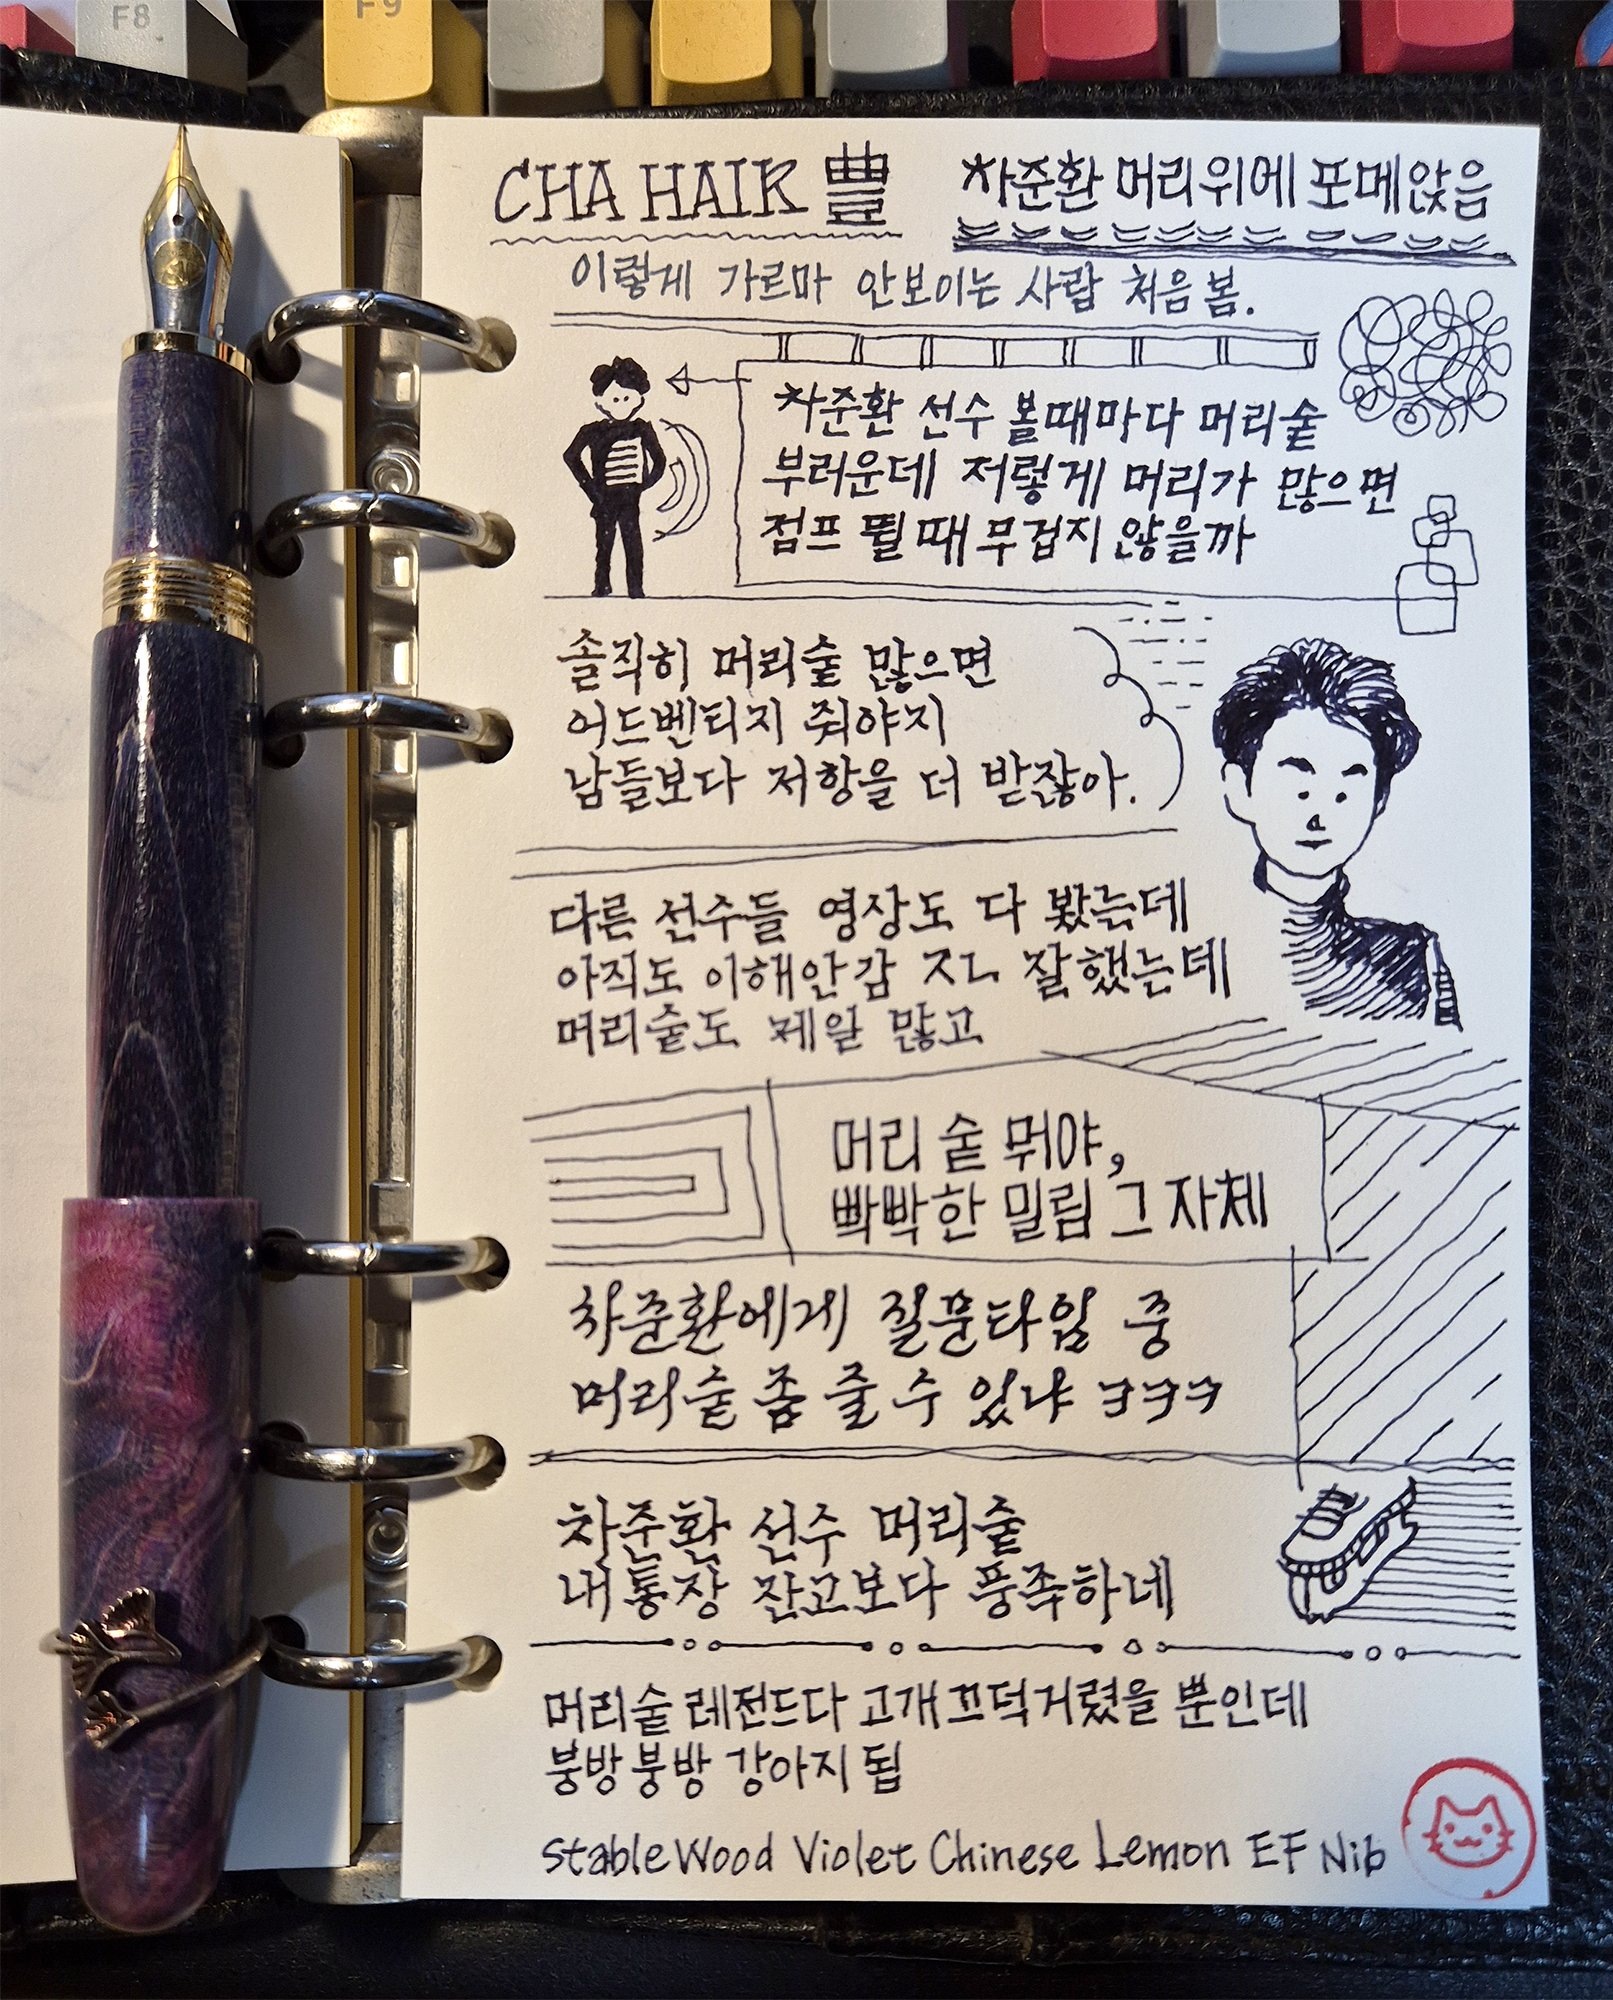 F8
F9
CHA HAIR 豊
차준환 머리위에 포메앉음
이렇게 가르마 안보이는 사람 처음 봄.
차준환 선수 볼때마다 머리숱
부러운데 저렇게 머리가 많으면
점프 뛸 때 무겁지 않을까
솔직히 머리숱 많으면
어드벤티지 줘야지
남들보다 저항을 더 받잖아.
다른 선수들 영상도 다 봤는데
아직도 이해안감 ㅈㄴ 잘했는데
머리숱도 제일 많고
머리 숱 뭐야,
빡빡한 밀림 그 자체
차준환에게 질문타임 중
머리숱 좀 줄 수 있냐 ㅋㅋㅋ
차준환 선수 머리숱
내통장 잔고보다 풍족하네
머리숱 레전드다 고개끄덕거렸을 뿐인데
붕방붕방 강아지 됨
Stable Wood Violet Chinese Lemon EF Nib